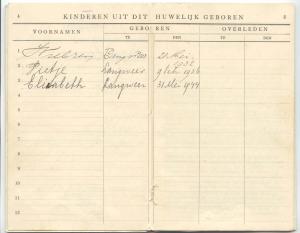 4 KINDEREN UIT DIT HUWELIJK GEBOREN 5
VOORNAMEN GEBOREN OVERLEDEN
TE DEN TE DEN
1 21 Mei
1932
2 Pietje Langweer 9 Feb 1936
3 Elisabeth Langweer 31 Mei 1944
4
5
6
7
8
9
10
11
12